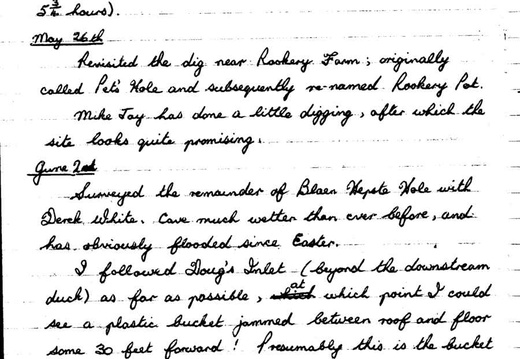 5 3/4 hours).
May 26th
Revisited the dig near Rookery Farm; originally
called Pet's Hole and subsequently re-named Rookery Pot.
Mike Jay has done a little digging, after which the
site looks quite promising.
June 2nd
Surveyed the remainder of Blaen Hepste Hole with
Derek White. Cave much wetter than ever before, and
has obviously flooded since Easter.
I followed Doug's Inlet (beyond the downstream
duck) as far as possible, at which point I could
see a plastic bucket jammed between roof and floor
some 30 feet forward! Presumably this is the bucket